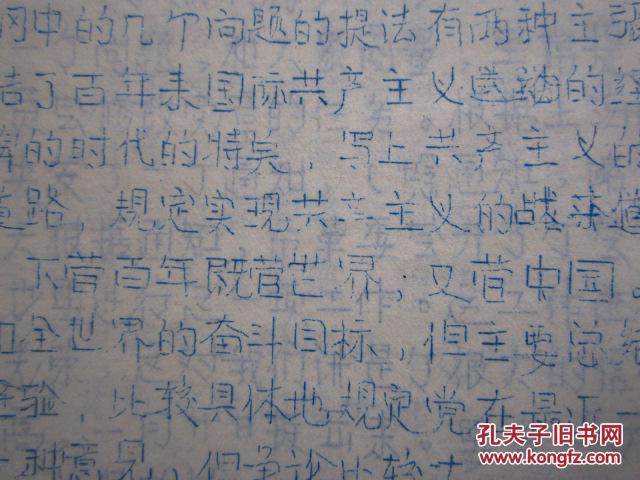 网中的几个问题的提法有两种主张
结了百年来国际共产主义道路的经
的时代的特点，写上共产主义的
道路，规定实现共产主义的战来道
下管百年既管世界，又管中国。
和全世界的奋斗目标，但主要总结
经验，比较具体地规定党在最近一
一种意见，但争论比较大
孔夫子旧书网
www.kongfz.com